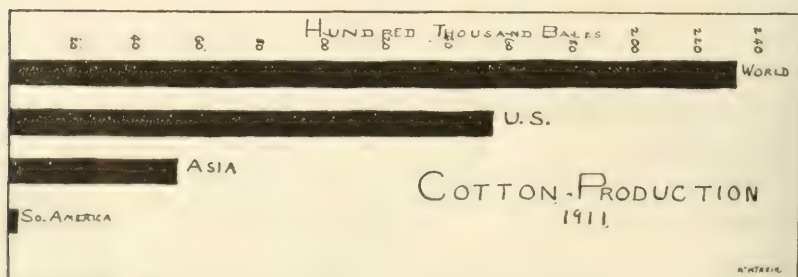 HUNDRED THOUSAND BALES
20 40 60 80 100 120 140 160 180 200 220 240
WORLD
U.S.
ASIA
SO. AMERICA
COTTON-PRODUCTION
1911